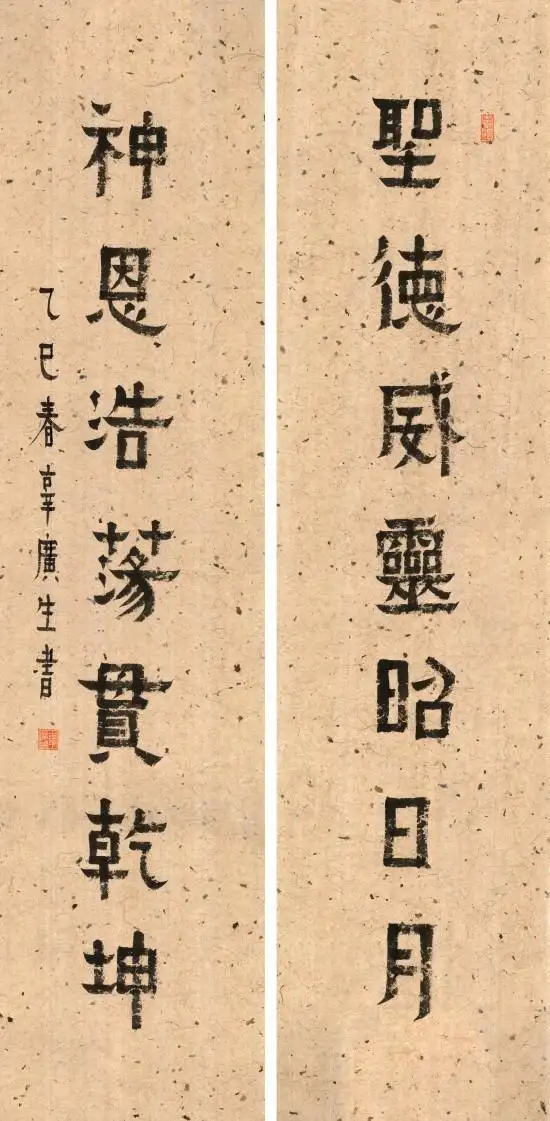 聖德威靈昭日月
神恩浩蕩貫乾坤
乙巳春辛廣生書